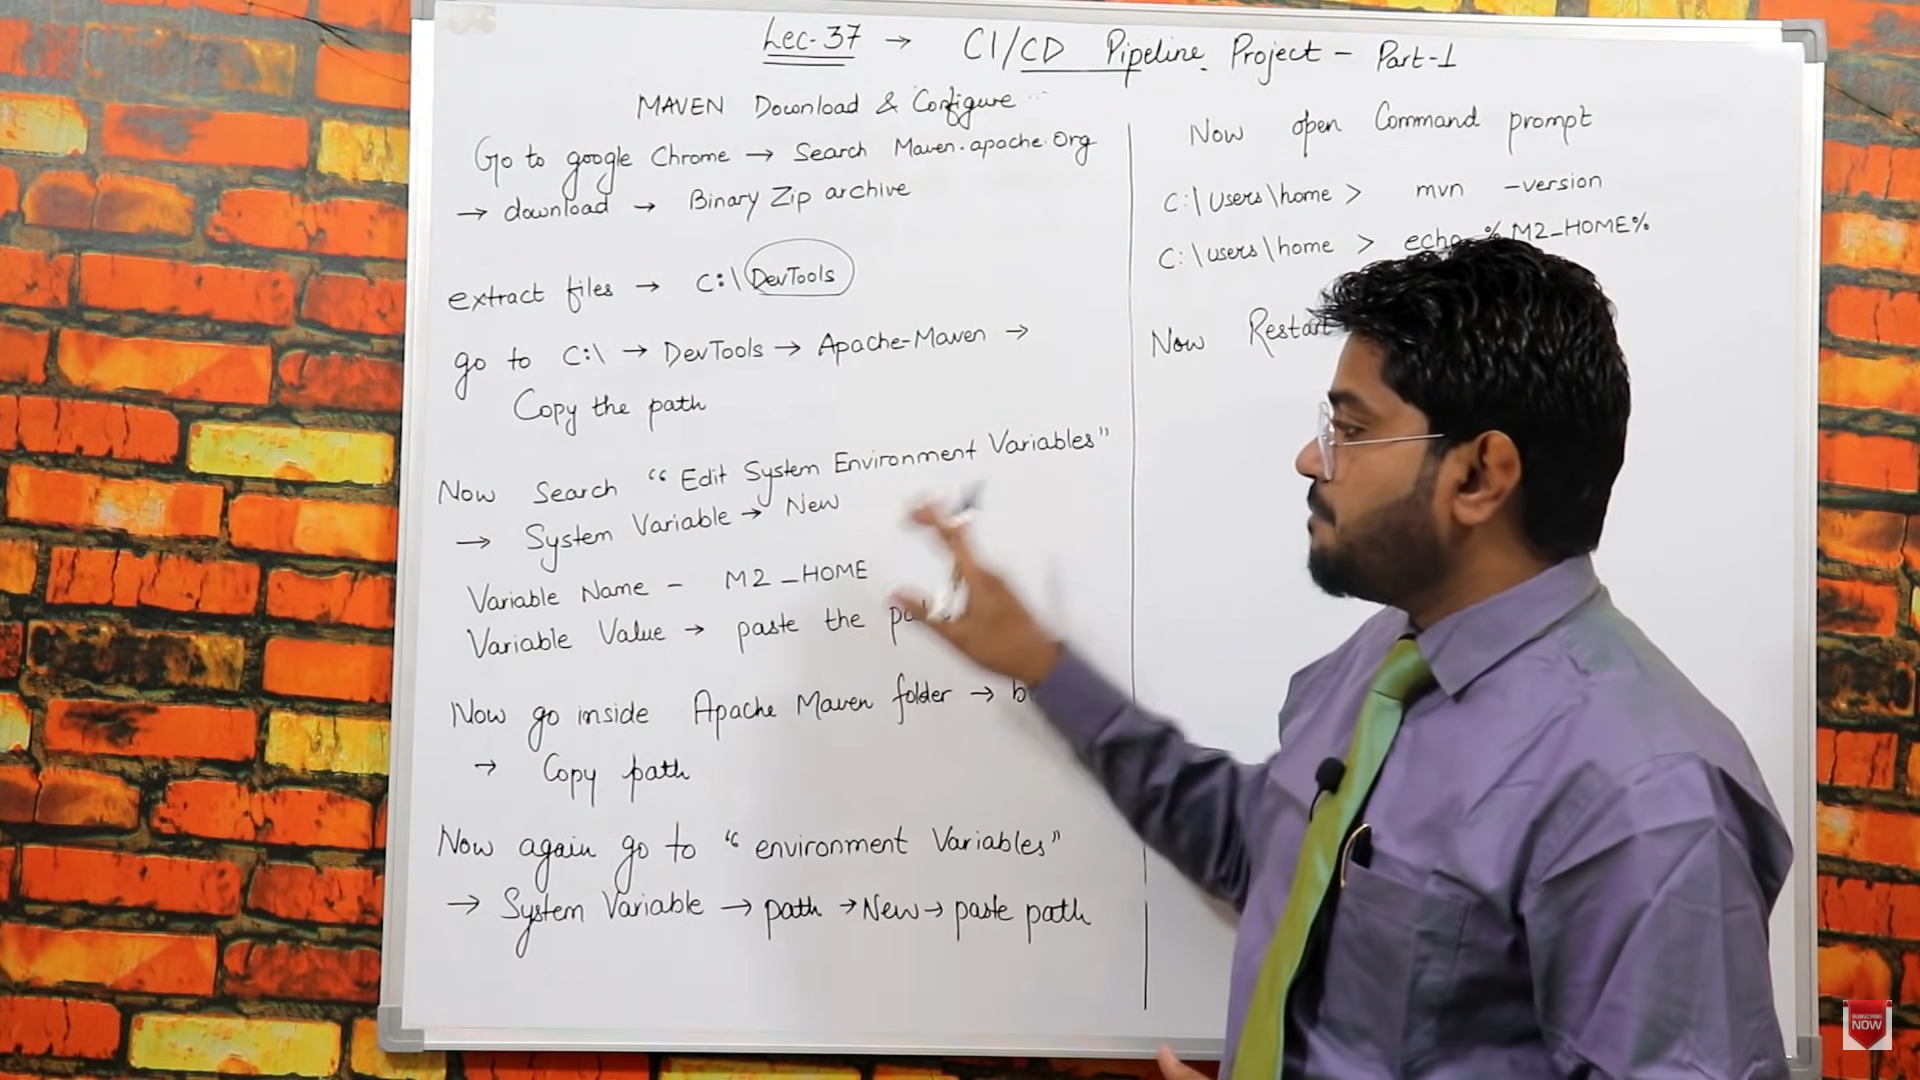 Lec-37 → CI/CD Pipeline Project - Part-1
MAVEN Download & Configure
Go to google Chrome → Search Maven.apache.org
→ download → Binary Zip archive
extract files → C:\DevTools
go to C:\ → DevTools → Apache-Maven →
Copy the path
Now Search "Edit System Environment Variables"
→ System Variable → New
Variable Name - M2_HOME
Variable Value → paste the
Now go inside Apache Maven folder →
→ Copy path
Now again go to "environment Variables"
→ System Variable → path → New → paste path
Now open Command prompt
C:\Users\home > mvn -version
C:\users\home > echo %M2_HOME%
Now Restart
SUBSCRIBE
NOW